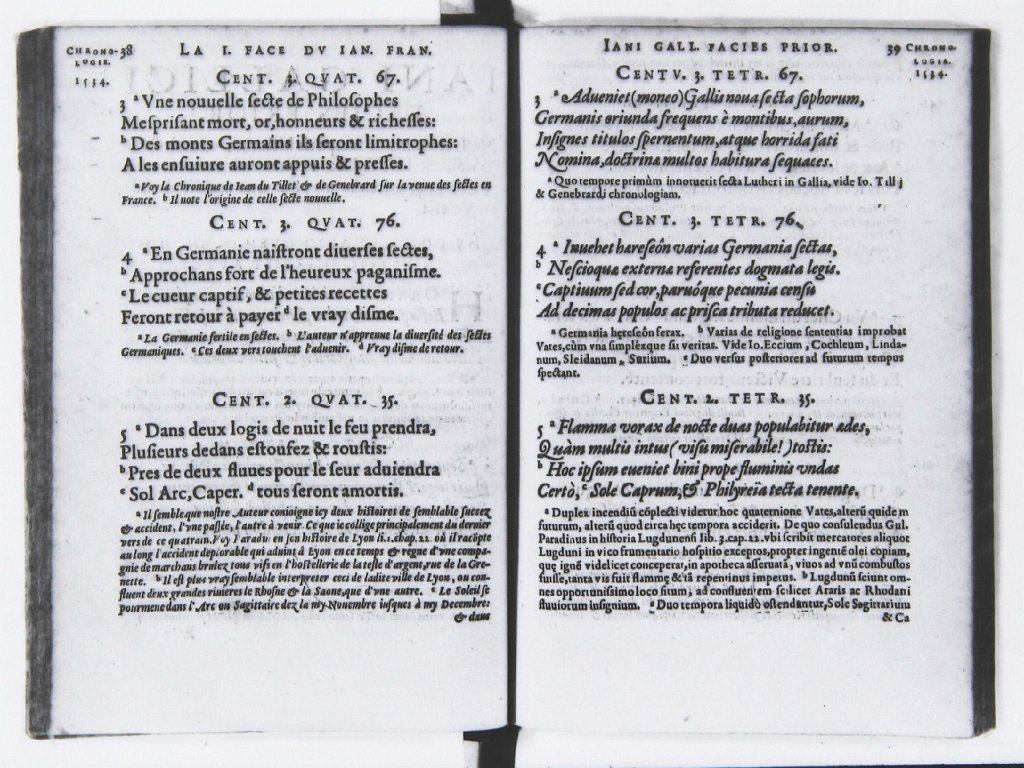 CHRONO-
LOGIE.
1534.
38
LA I. FACE DV IAN. FRAN.
CENT. 3. QVAT. 67.
3 ᵃ Vne nouuelle ſecte de Philoſophes
Meſpriſant mort, or, honneurs & richeſſes:
ᵇ Des monts Germains ils ſeront limitrophes:
A les enſuiure auront appuis & preſſes.
ᵃ Voy la Chronique de Iean du Tillet & de Genebrard ſur la venue des ſectes en
France. ᵇ Il note l'origine de celle ſecte nouuelle.
CENT. 3. QVAT. 76.
4 ᵃ En Germanie naiſtront diuerſes ſectes,
ᵇ Approchans fort de l'heureux paganiſme.
ᶜ Le cueur captif, & petites recettes
Feront retour à payer ᵈ le vray diſme.
ᵃ La Germanie fertile en ſectes. ᵇ L'auteur n'appreuue la diuerſité des ſectes
Germaniques. ᶜ Ces deux vers touchent l'aduenir. ᵈ Vray diſme de retour.
CENT. 2. QVAT. 35.
5 ᵃ Dans deux logis de nuit le feu prendra,
Pluſieurs dedans eſtoufez & rouſtis:
ᵇ Pres de deux fluues pour le ſeur aduiendra
ᶜ Sol Arc, Caper. ᵈ tous ſeront amortis.
ᵃ Il ſemble que noſtre Auteur conioigne icy deux hiſtoires de ſemblable ſuccez
& accident, l'vne paſſée, l'autre à venir. Ce que ie collige principalement du dernier
vers de ce quatrain. Voy Paradin en ſon hiſtoire de Lyon li. 3. chap. 22. où il racõpte
au long l'accident deplorable qui aduint à Lyon en ce temps & regne d'vne compa-
gnie de marchans brulez tous vifs en l'hoſtellerie de la teſte d'argent, rue de la Gre-
nette. ᵇ Il eſt plus vray ſemblable interpreter ceci de ladite ville de Lyon, ou con-
fluent deux grandes riuieres le Rhoſne & la Saone, que d'vne autre. ᶜ Le Soleil ſe
pourmene dans l'Arc ou Sagittaire dez la my Nouembre iuſques à my Decembre:
& dans
IANI GALL. FACIES PRIOR.
39
CHRONO-
LOGIA.
1534.
CENTV. 3. TETR. 67.
3 ᵃ Adueniet (moneo) Gallis noua ſecta ſophorum,
Germanis oriunda frequens è montibus, aurum,
Inſignes titulos ſpernentum, atque horrida fati
Nomina, doctrina multos habitura ſequaces.
ᵃ Quo tempore primùm innotuerit ſecta Lutheri in Gallia, vide Io. Tillij
& Genebrardi chronologiam.
CENT. 3. TETR. 76.
4 ᵃ Inuehet hereſeôn varias Germania ſectas,
ᵇ Neſcioqua externa referentes dogmata legis.
ᶜ Captiuum ſed cor, paruôque pecunia cenſu
Ad decimas populos ac priſca tributa reducet.
ᵃ Germania hereſeôn ferax. ᵇ Varias de religione ſententias improbat
Vates, cùm vna ſimpléxque ſit veritas. Vide Io. Eccium, Cochleum, Linda-
num, Sleidanum, Surium. ᶜ Duo verſus poſteriores ad futurum tempus
ſpectant.
CENT. 2. TETR. 35.
5 ᵃ Flamma vorax de nocte duas populabitur ædes,
Quàm multis intus (viſu miſerabile!) toſtis:
ᵇ Hoc ipſum eueniet bini prope fluminis vndas
Certò, ᶜ Sole Caprum, & Philyreïa tecta tenente.
ᵃ Duplex incendiũ cõplecti videtur hoc quaternione Vates, alterũ quidem
futurum, alterũ quod circa hęc tempora acciderit. De quo conſulendus Gul.
Paradinus in hiſtoria Lugdunenſi lib. 3. cap. 22. vbi ſcribit mercatores aliquot
Lugduni in vico frumentario hoſpitio exceptos, propter ingentẽ olei copiam,
quę ignẽ videlicet conceperat, in apotheca aſſeruatã, viuos ad vnũ combuſtos
fuiſſe, tanta vis fuit flammę & tã repentinus impetus. ᵇ Lugdunũ ſciunt om-
nes opportuniſſimo loco ſitum, ad confluentem ſcilicet Araris ac Rhodani
fluuiorum inſignium. ᶜ Duo tempora liquidò oſtenduntur, Sole Sagittarium
& Ca